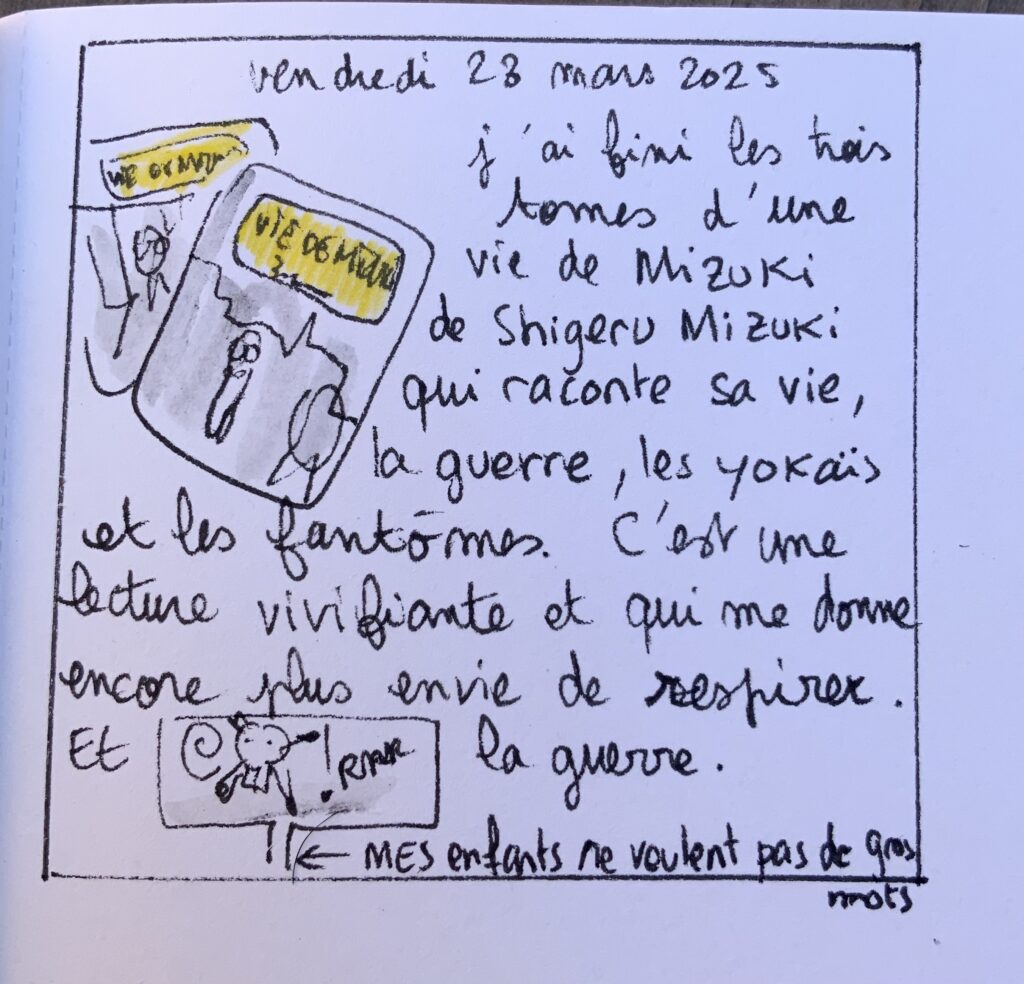 vendredi 23 mars 2025
j'ai fini les trois
tomes d'une
vie de Mizuki
de Shigeru Mizuki
qui raconte sa vie,
la guerre, les yokaïs
et les fantômes. C'est une
lecture vivifiante et qui me donne
encore plus envie de respirer.
Et
la guerre.
← MES enfants ne veulent pas de gros
mots
VIE DE
VIE DE Mizuki
!